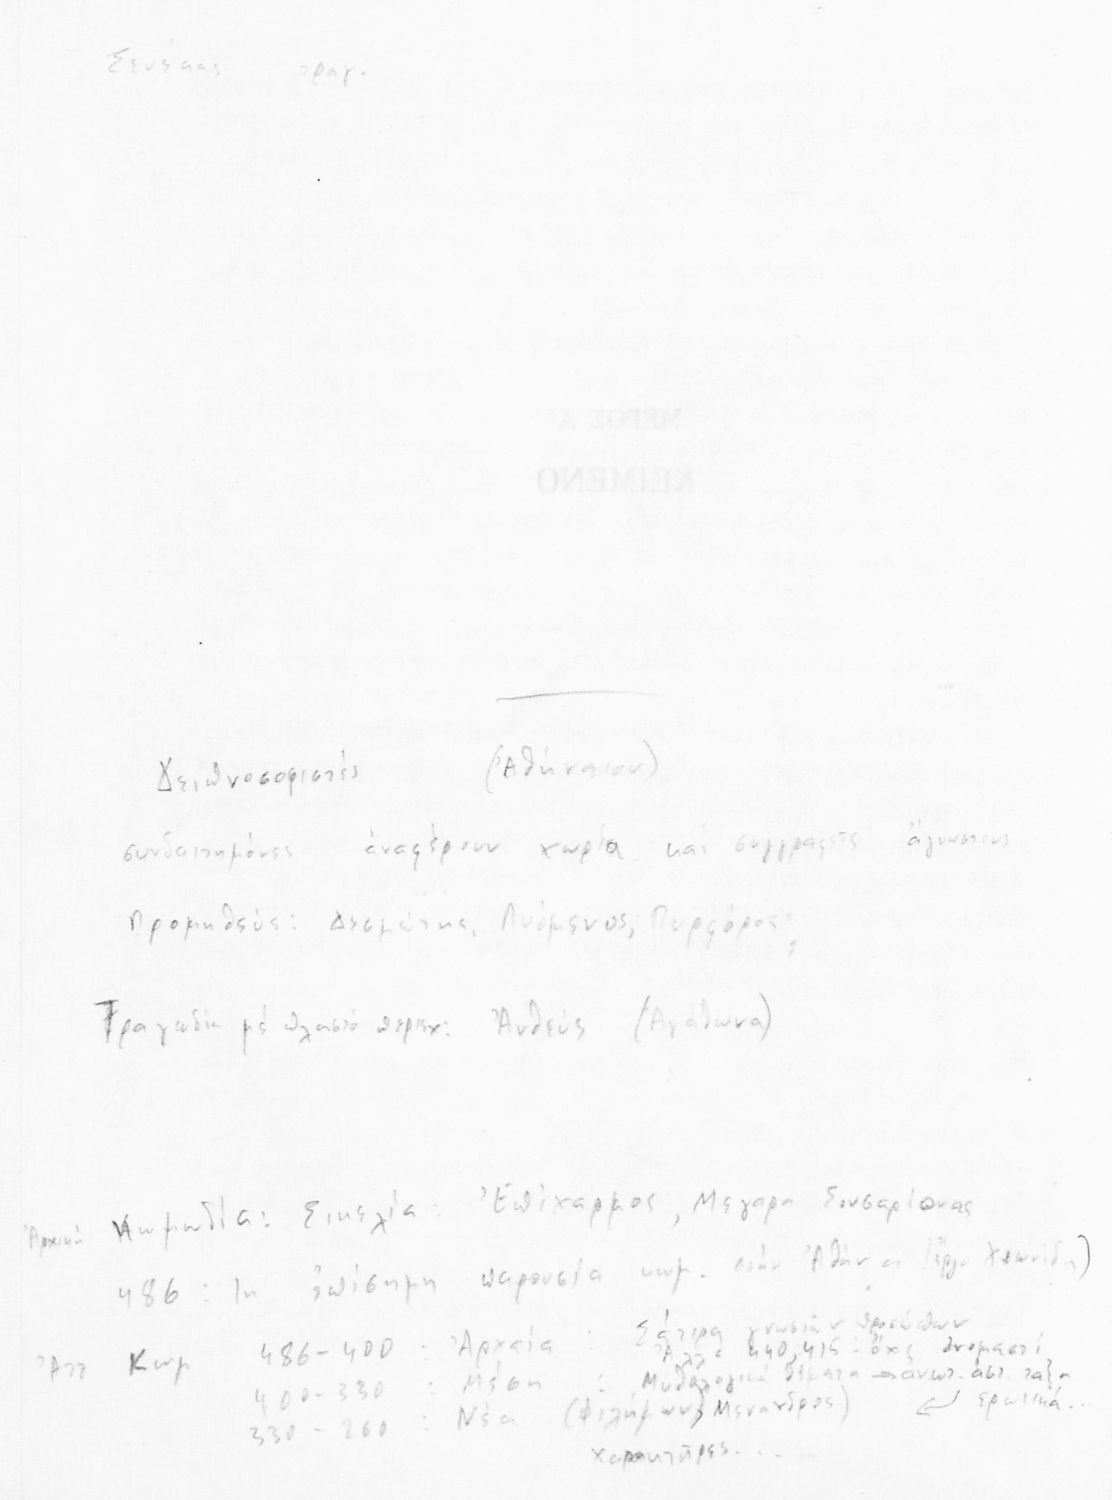 Σενέκας τραγ.
ΜΕΡΟΣ Α'
ΚΕΙΜΕΝΟ
Δειπνοσοφιστές (Ἀθήναιου)
συνδαιτημόνες ἀναφέρουν χωρία καί συγγραφεῖς ἀγνώστους
Προμηθεύς: Δεσμώτης, Λυόμενος, Πυρφόρος
Τραγωδία μέ πλαστό περιεχ: Ἀνθεύς (Ἀγάθωνα)
Ἀρχική Κωμωδία: Σικελία: Ἐπίχαρμος, Μεγαρα Σουσαρίωνας
486: 1η ἐπίσημη παρουσία κωμ. στήν Ἀθήνα (ἔργο Χιωνίδη)
Ἀττ Κωμ 486-400: Ἀρχαία: Σάτιρα γνωστῶν προσώπων
440, 415: ὄχι ὀνομαστί
400-330: Μέση: Μυθολογικά θέματα ἀνωτ. ἀστ. ταξη
330-260: Νέα (Φιλήμων, Μενανδρος) ερωτικά...
χαρακτῆρες....